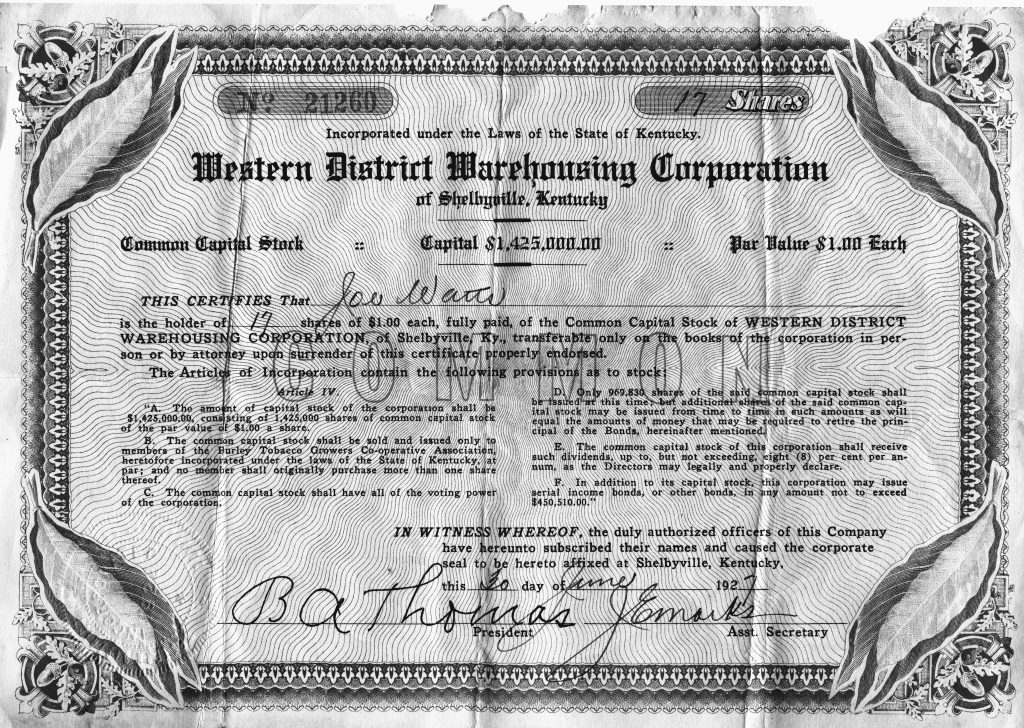 No 21260
17 Shares
Incorporated under the Laws of the State of Kentucky.
Western District Warehousing Corporation
of Shelbyville, Kentucky
Common Capital Stock :: Capital $1,425,000.00 :: Par Value $1.00 Each
THIS CERTIFIES That Joe Watts
is the holder of 17 shares of $1.00 each, fully paid, of the Common Capital Stock of WESTERN DISTRICT
WAREHOUSING CORPORATION, of Shelbyville, Ky., transferable only on the books of the corporation in per-
son or by attorney upon surrender of this certificate properly endorsed.
The Articles of Incorporation contain the following provisions as to stock:
COMMON
Article IV.
"A. The amount of capital stock of the corporation shall be
$1,425,000.00, consisting of 1,425,000 shares of common capital stock
of the par value of $1.00 a share.
B. The common capital stock shall be sold and issued only to
members of the Burley Tobacco Growers Co-operative Association,
heretofore incorporated under the laws of the State of Kentucky, at
par; and no member shall originally purchase more than one share
thereof.
C. The common capital stock shall have all of the voting power
of the corporation.
D. Only 969,830 shares of the said common capital stock shall
be issued at this time, but additional shares of the said common cap-
ital stock may be issued from time to time in such amounts as will
equal the amounts of money that may be required to retire the prin-
cipal of the Bonds, hereinafter mentioned.
E. The common capital stock of this corporation shall receive
such dividends, up to, but not exceeding, eight (8) per cent per an-
num, as the Directors may legally and properly declare.
F. In addition to its capital stock, this corporation may issue
serial income bonds, or other bonds, in any amount not to exceed
$450,510.00."
IN WITNESS WHEREOF, the duly authorized officers of this Company
have hereunto subscribed their names and caused the corporate
seal to be hereto affixed at Shelbyville, Kentucky,
this 30 day of June 1927
B A Thomas J E Marks
President Asst. Secretary